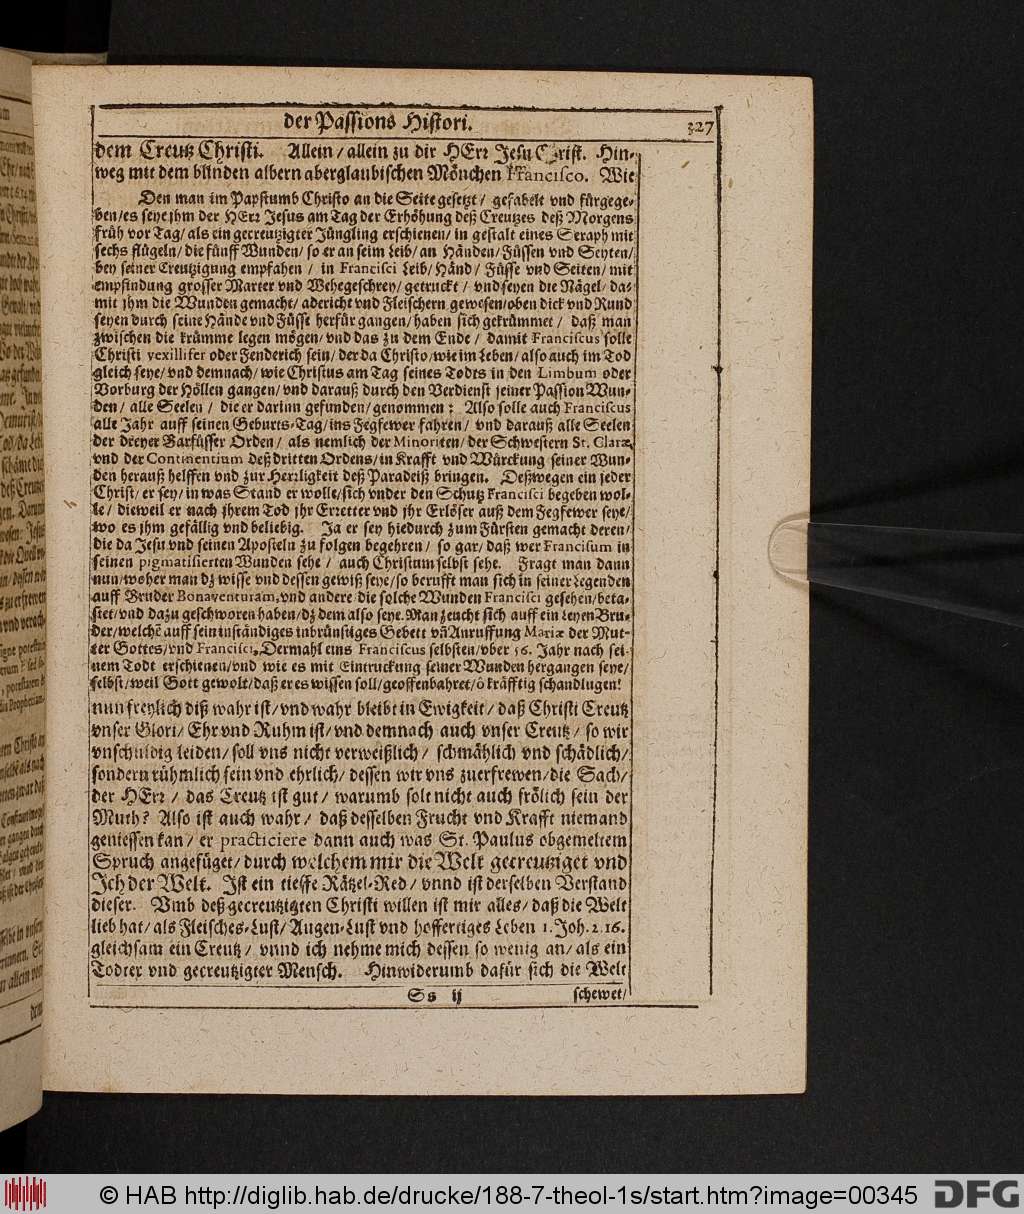 der Passions Histori. 327
dem Creutz Christi. Allein / allein zu dir HErr Jesu Christ. Hin-
weg mit dem blinden albern aberglaubischen Mönchen Francisco. Wie
Den man im Papstumb Christo an die Seite gesetzt / gefabelt vnd fürgege-
ben/es seye jhm der HErr Jesus am Tag der Erhöhung deß Creutzes deß Morgens
früh vor Tag/ als ein gecreutzigter Jüngling erschienen/ in gestalt eines Seraph mit
sechs flügeln/ die fünff Wunden/ so er an seim Leib/ an Händen/ Füssen vnd Seyten/
bey seiner Creutzigung empfahen / in Francisci Leib/ Händ/ Füsse vnd Seiten/ mit
empfindung grosser Marter vnd Wehegeschrey/ getruckt / vnd seyen die Nägel/ da-
mit jhm die Wunden gemacht/ adericht vnd Fleischern gewesen/oben dick vnd Rund
seyen durch seine Hände vnd Füsse herfür gangen/ haben sich gekrümmet / daß man
zwischen die krümme legen mögen/ vnd das zu dem Ende / damit Franciscus solle
Christi vexillifer oder Fenderich sein/ der da Christo/ wie im Leben/ also auch im Tod
gleich seye/ vnd demnach/ wie Christus am Tag seines Todts in den Limbum oder
Vorburg der Höllen gangen/ vnd darauß durch den Verdienst seiner Passion Wun-
den/ alle Seelen / die er darinn gefunden/ genommen: Also solle auch Franciscus
alle Jahr auff seinen Geburts-Tag/ ins Fegfewer fahren/ vnd darauß alle Seelen
der dreyer Barfüsser Orden/ als nemlich der Minoriten/ der Schwestern St. Claræ,
vnd der Continentium deß dritten Ordens/ in Krafft vnd Würckung seiner Wun-
den herauß helffen vnd zur Herrligkeit deß Paradeiß bringen. Deßwegen ein jeder
Christ/ er sey/ in was Stand er wolle/ sich vnder den Schutz Francisci begeben wol-
le/ dieweil er nach jhrem Tod jhr Erretter vnd jhr Erlöser auß dem Fegfewer seye/
wo es jhm gefällig vnd beliebig. Ja er sey hiedurch zum Fürsten gemacht deren/
die da Jesu vnd seinen Aposteln zu folgen begehren / so gar/ daß wer Francisum in
seinen pigmatisierten Wunden sehe / auch Christum selbst sehe. Fragt man dann
nun/ woher man dz wisse vnd dessen gewiß seye/ so berufft man sich in seiner Legenden
auff Bruder Bonaventuram, vnd andere die solche Wunden Francisci gesehen/ beta-
stet/ vnd dazu geschworen haben/ dz dem also seye. Man zeucht sich auff ein Leyen Bru-
der/ welchē auff sein inständiges inbrünstiges Gebett vn̄ Anruffung Mariæ der Mut-
ter Gottes/ vnd Francisci, Dermahl eins Franciscus selbsten/ vber 56. Jahr nach sei-
nem Todt erschienen/ vnd wie es mit Eintruckung seiner Wunden hergangen seye/
selbst/ weil Gott gewolt/ daß er es wissen soll/ geoffenbahret/ ô kräfftig schandlugen!
nun freylich diß wahr ist/ vnd wahr bleibt in Ewigkeit / daß Christi Creutz
vnser Glori/ Ehr vnd Ruhm ist/ vnd demnach auch vnser Creutz / so wir
vnschuldig leiden/ soll vns nicht verweißlich / schmählich vnd schädlich/
sondern rühmlich sein vnd ehrlich/ dessen wir vns zuerfrewen/ die Sach/
der HErr / das Creutz ist gut / warumb solt nicht auch frölich sein der
Muth? Also ist auch wahr / daß desselben Frucht vnd Krafft niemand
geniessen kan/ er practiciere dann auch was St. Paulus obgemeltem
Spruch angefüget/ durch welchem mir die Welt gecreutziget vnd
Ich der Welt. Ist ein tieffe Rätzel-Red/ vnnd ist derselben Verstand
dieser. Vmb deß gecreutzigten Christi willen ist mir alles/ daß die Welt
lieb hat/ als Fleisches-Lust/ Augen-Lust vnd hoffertiges Leben 1. Joh. 2. 16.
gleichsam ein Creutz/ vnnd ich nehme mich dessen so wenig an/ als ein
Todter vnd gecreutzigter Mensch. Hinwiderumb dafür sich die Welt
Ss ij schewet/
© HAB http://diglib.hab.de/drucke/188-7-theol-1s/start.htm?image=00345 DFG